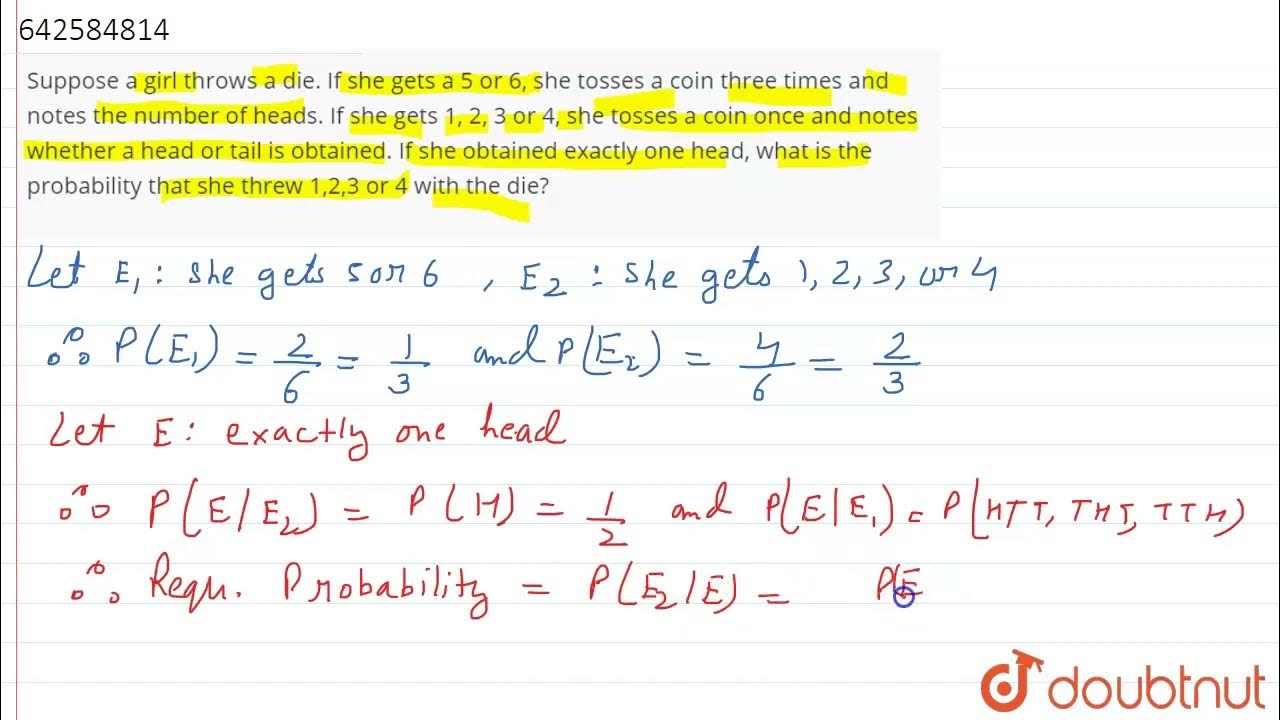 642584814
Suppose a girl throws a die. If she gets a 5 or 6, she tosses a coin three times and
notes the number of heads. If she gets 1, 2, 3 or 4, she tosses a coin once and notes
whether a head or tail is obtained. If she obtained exactly one head, what is the
probability that she threw 1,2,3 or 4 with the die?
Let E₁ : she gets 5 or 6 , E₂ : she gets 1, 2, 3, or 4
∴ P(E₁) = 2/6 = 1/3 and P(E₂) = 4/6 = 2/3
Let E : exactly one head
∴ P(E/E₂) = P(H) = 1/2 and P(E/E₁) = P(HTT, THT, TTH)
∴ Requ. Probability = P(E₂/E) = P(E
doubtnut